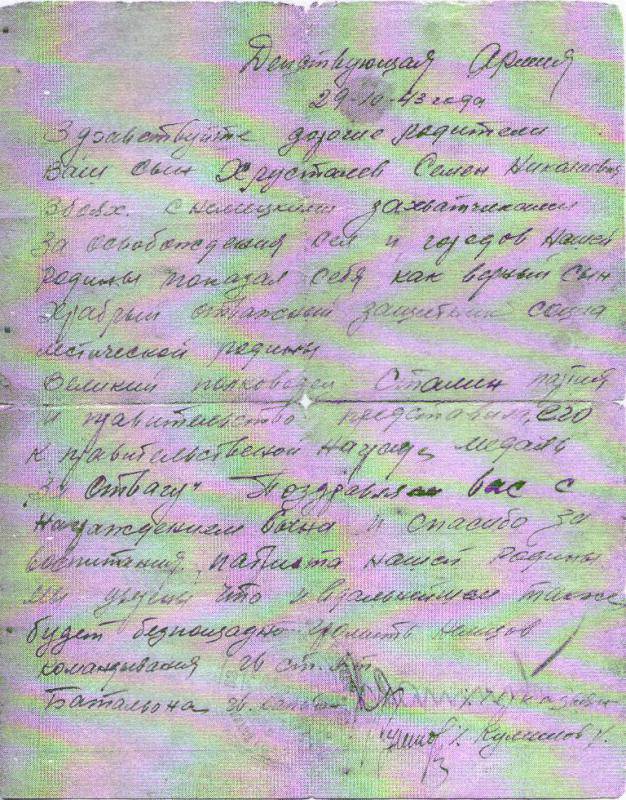 Действующая Армия
29-10-43 года
Здравствуйте дорогие родители
Ваш сын Хрусталев Семен Николаевич
в боях с немецкими захватчиками
за освобождения сел и городов нашей
родины показал себя как верный сын
Храбрый отважный защитник социа
листической родины
Великий полководец Сталин партия
и правительство представила его
к правительственой награде медаль
"За Отвагу" Поздравляем вас с
награждением воина и спасибо за
воспитания патиота нашей Родины
мы уверены что и вдальнейшем также
будет безпощадно громить немцов
командывания гв ст. л-т
Батальона гв.